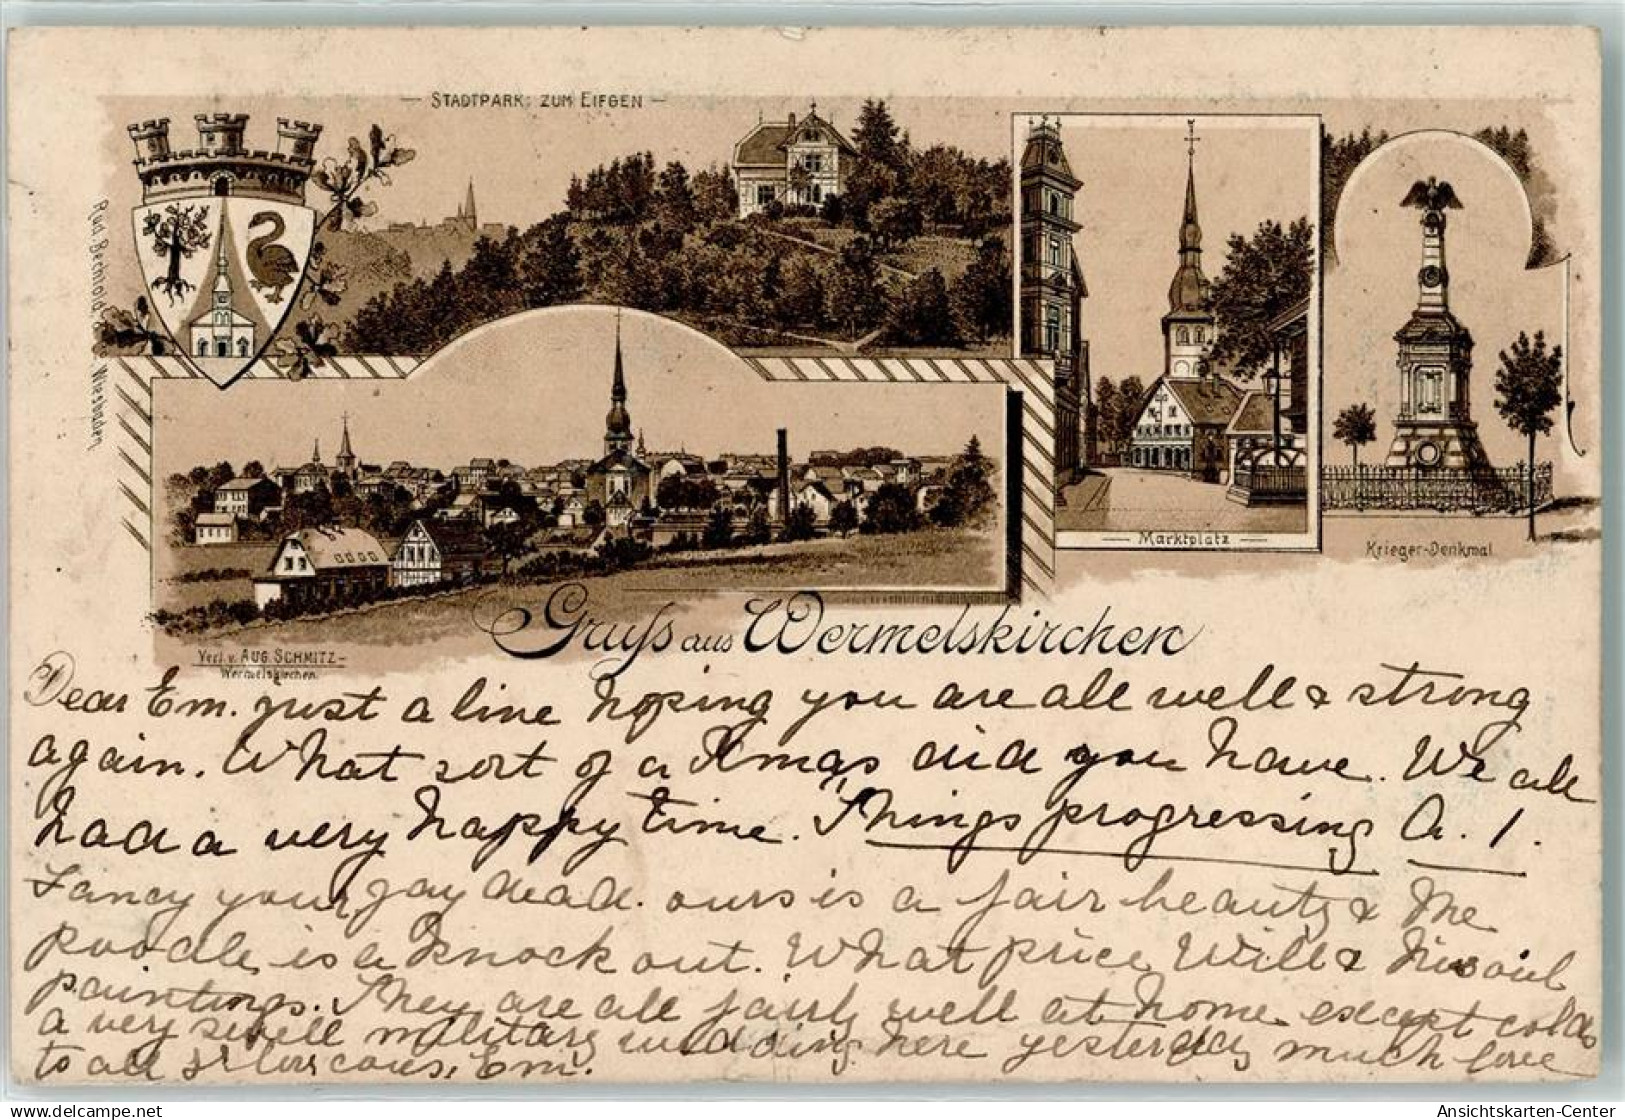 — STADTPARK: ZUM EIFGEN —
Rud. Bechtold & Wiesbaden
— Marktplatz —
Krieger-Denkmal
Gruss aus Wermelskirchen
Verl. v. AUG. SCHMITZ -
Wermelskirchen.
Dear Em. just a line hoping you are all well & strong
again. What sort of a Xmas did you have. We all
had a very happy time. Things progressing A. 1.
Fancy your jay dead. ours is a fair beauty & the
poodle is a knock out. What price Will & his oil
paintings. They are all fairly well at home except colds
a very swell military wedding here yesterday much love
to all yr lov cous. Em.
www.delcampe.net
Ansichtskarten-Center